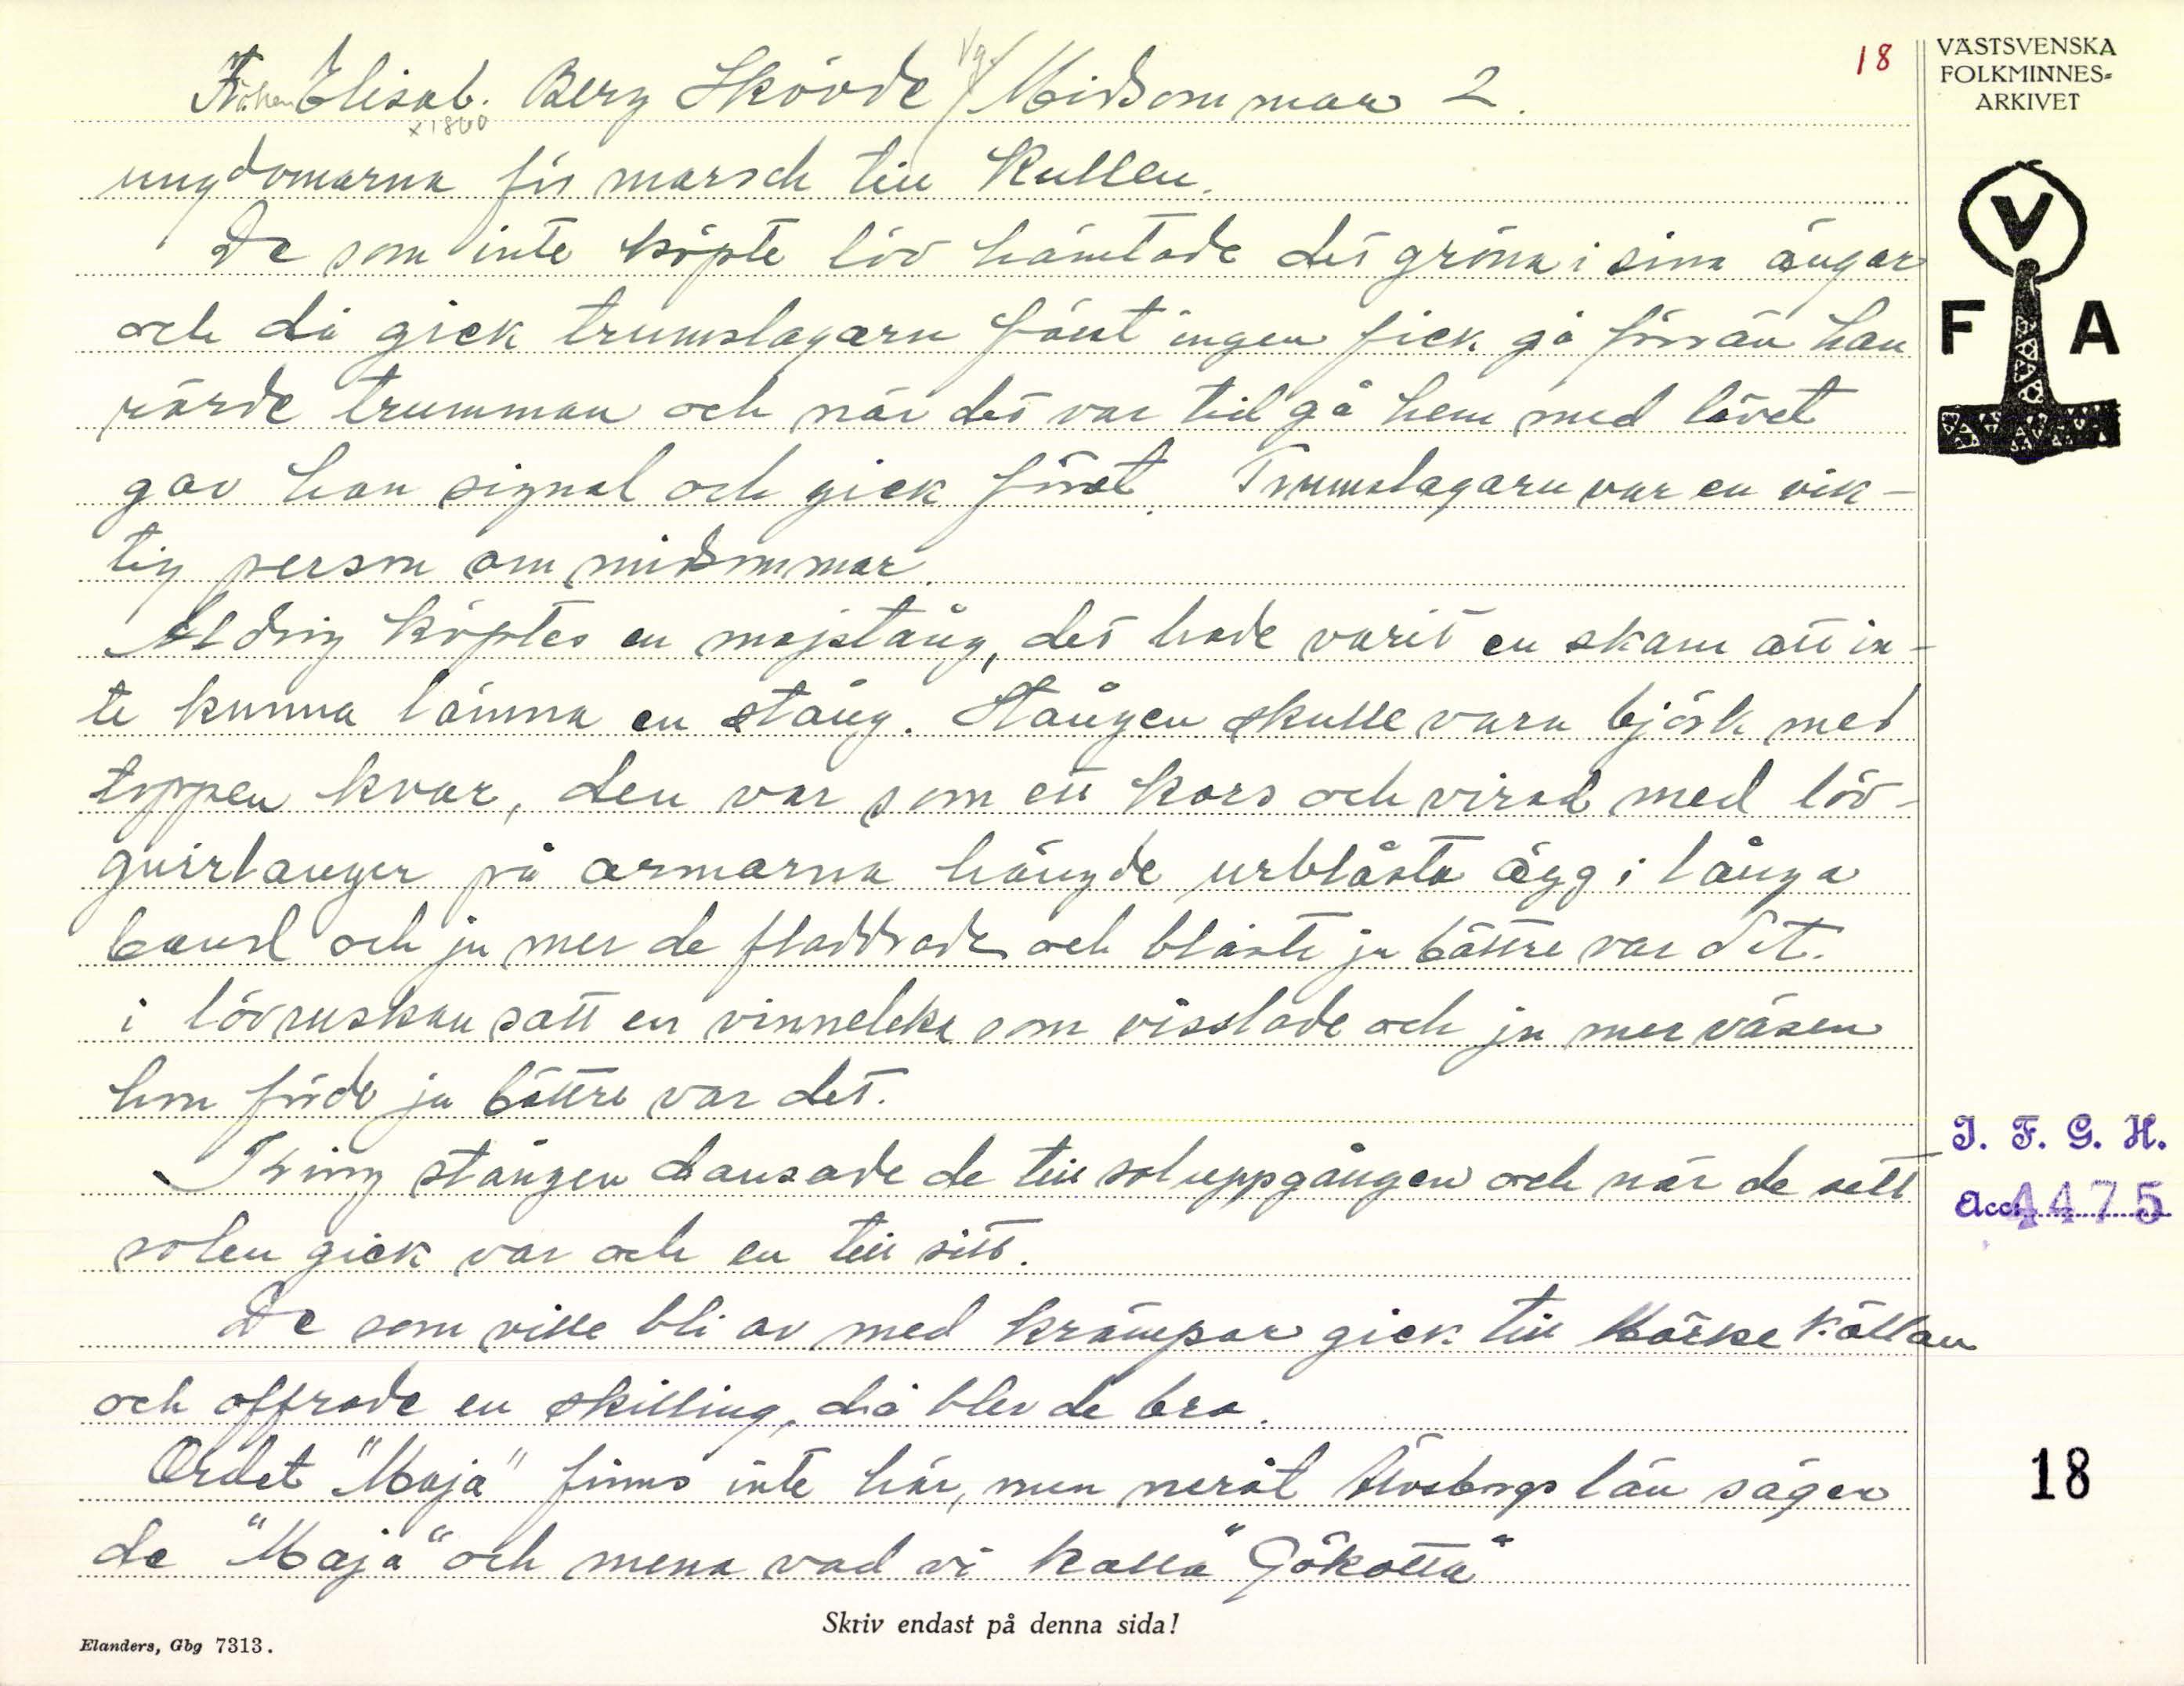 18
VÄSTSVENSKA
FOLKMINNES=
ARKIVET
Fröken Elisab. Berg Skövde Vg. / Midsommar 2.
x 1860
ungdomarna för marsch till Kullen.
De som inte köpte löv hämtade det gröna i sina ängar
och då gick trumslagarn först ingen fick gå förrän han
rörde trumman och när det var tid gå hem med lövet
gav han signal och gick först. Trumslagarn var en vik-
tig person om midsommar.
Aldrig köptes en majstång, det hade varit en skam att in-
te kunna lämna en stång. Stången skulle vara björk med
toppen kvar, den var som ett kors och virad med löv-
guirlanger på armarna hängde urblåsta ägg i långa
band och ju mer de fladdrade och blåste ju bättre var det.
i lövruskan satt en vinneleka som visslade och ju mer väsen
hon förde ju bättre var det.
Kring stången dansade de till soluppgången och när de sett
solen gick var och en till sitt.
De som ville bli av med krämpor gick till källan
och offrade en skilling, då blev de bra.
Ordet "Maja" finns inte här, men neråt Älvsborgs län säger
de "Maja" och mena vad vi kalla "Gökotta"
V
F A
I. F. G. H.
Acc. 4475
18
Skriv endast på denna sida!
Elanders, Gbg 7313.